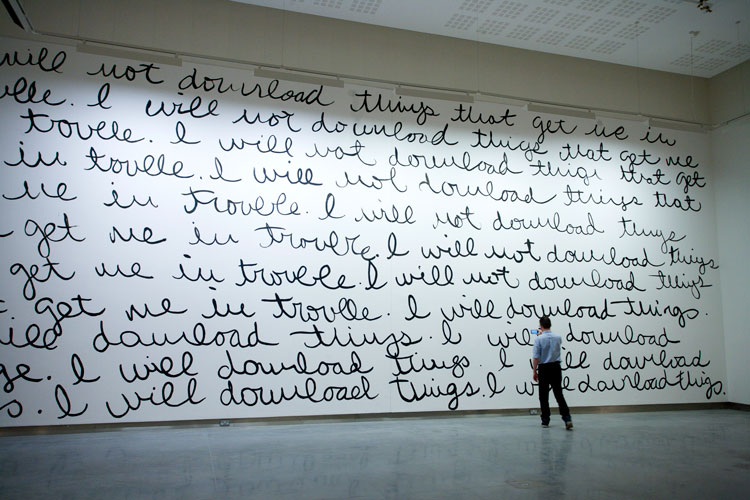 will not download things that get me in
uble. I will not download things that get me
trouble. I will not download things that get
in trouble. I will not download things that
me in trouble. I will not download things
get me in trouble. I will not download things
get me in trouble. I will not download things
get me in trouble. I will download things.
will download things. I will download
I will download things. I will download
s. I will download things. I will download things.